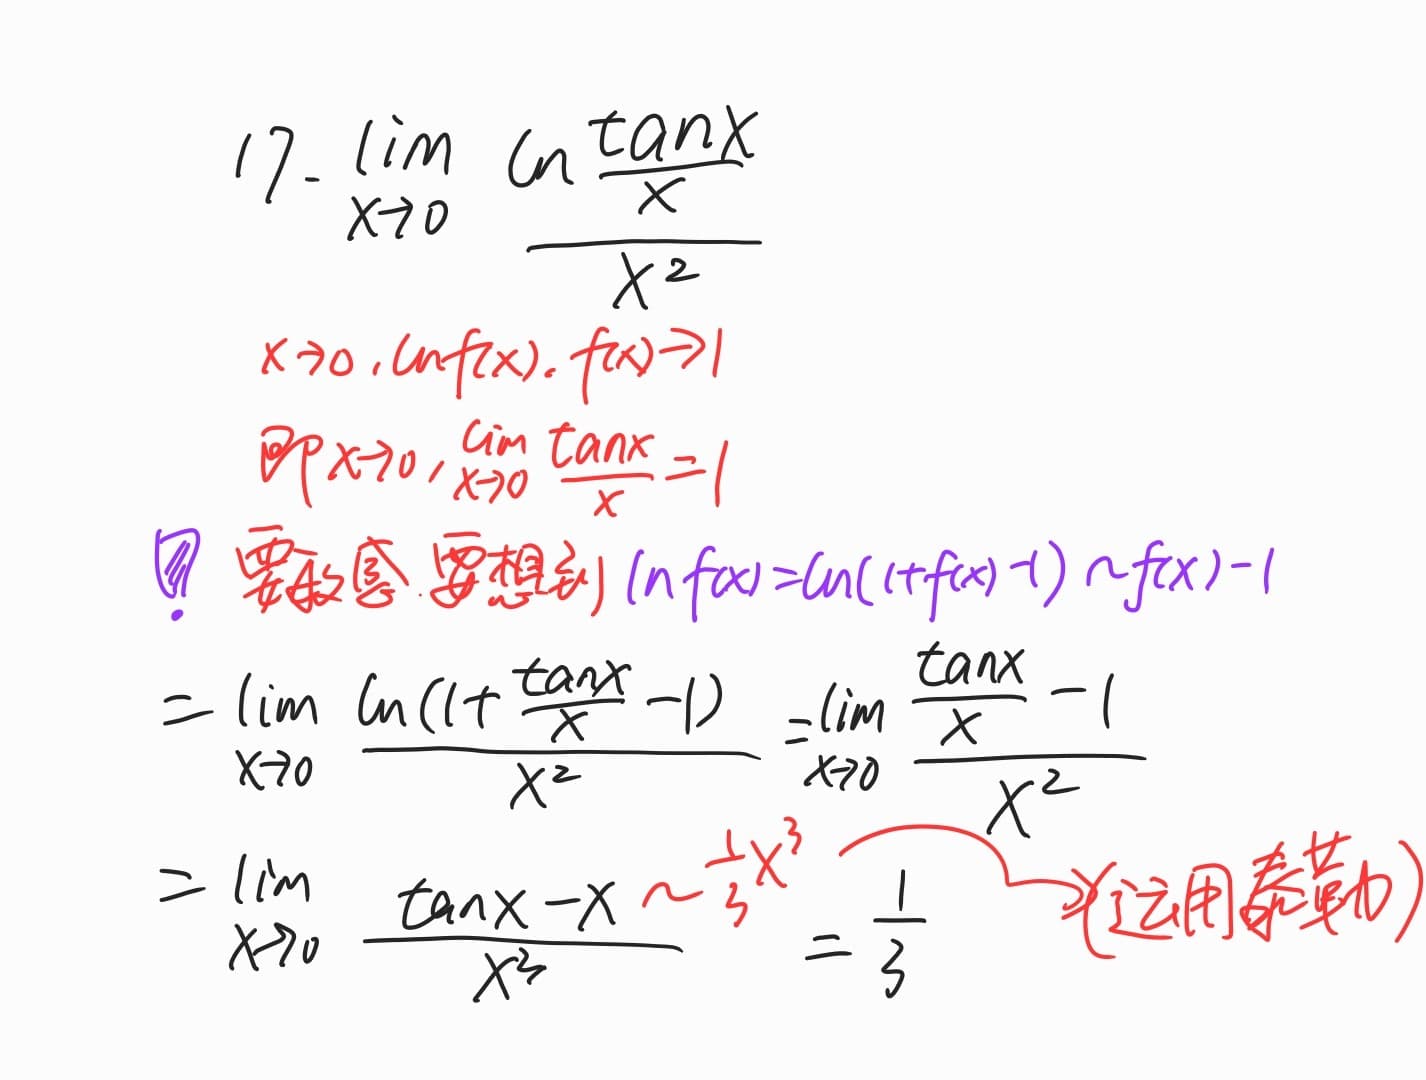 17. lim x→0 ln (tanx/x) / x²
x→0, ln f(x). f(x)→1
即 x→0, lim x→0 tanx/x = 1
! 要敏感. 要想到 ln f(x) = ln(1+f(x)-1) ~ f(x)-1
= lim x→0 ln(1+ tanx/x -1) / x² = lim x→0 (tanx/x - 1) / x²
= lim x→0 (tanx-x) / x³ ~ 1/3 x³ = 1/3 (运用泰勒)